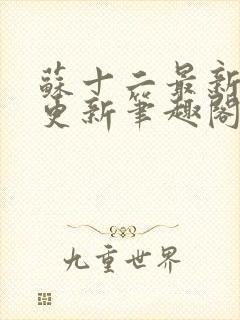 蘇十二最新
更新筆趣閣
九重世界